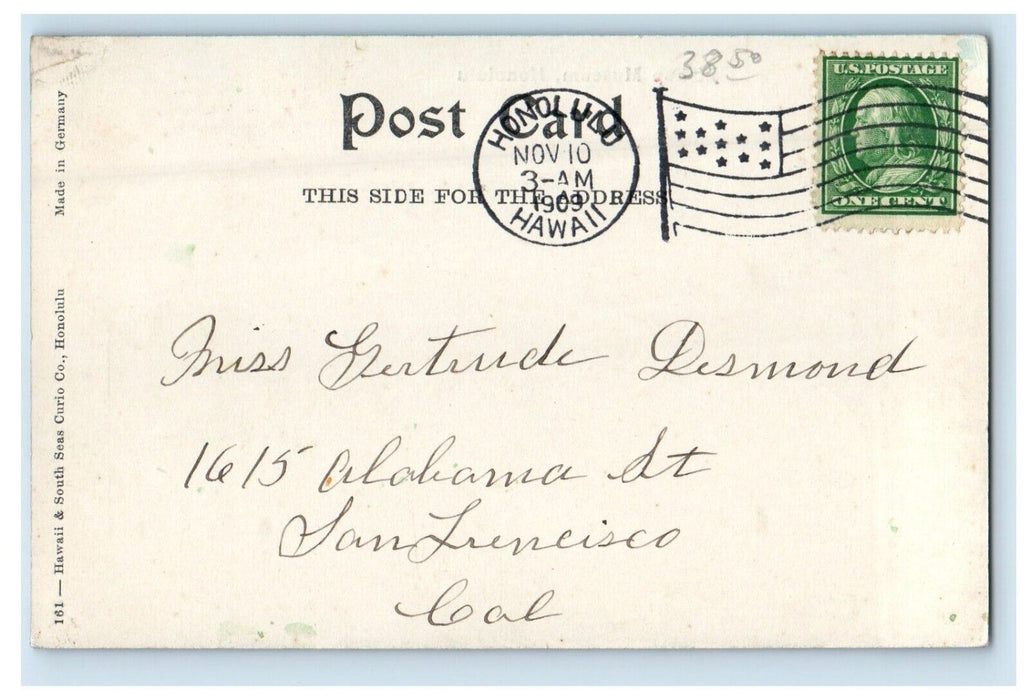 38.50
Post Card
HONOLULU
NOV 10
3-AM
1909
HAWAII
U.S. POSTAGE
ONE CENT
THIS SIDE FOR THE ADDRESS
Miss Gertrude Desmond
1615 Alabama St
San Frencisco
Cal
161 — Hawaii & South Seas Curio Co., Honolulu Made in Germany